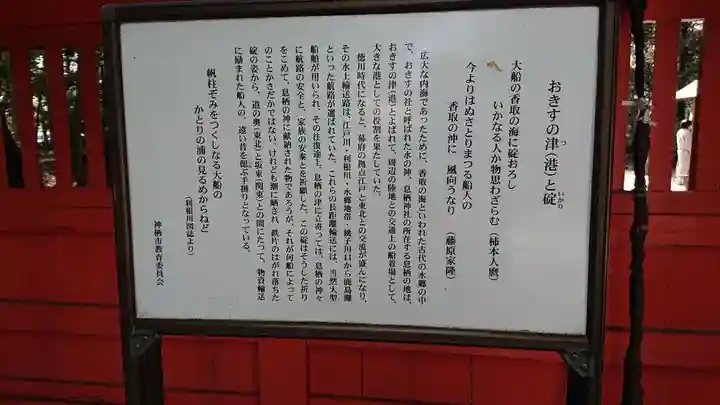 おきすの津(港)と碇
つ
いかり
大船の香取の海に碇おろし
いかなる人か物思わざらむ (柿本人麿)
今よりはぬさとりまつる船人の
香取の沖に 風向うなり (藤原家隆)
広大な内海であったために、香取の海といわれた古代の水郷の中
で、おきすの社と呼ばれた水の神、息栖神社の所在する息栖の地は、
おきすの津(港)とよばれて、周辺の陸地との交通上の船着場として、
大きな港としての役割を果たしていた。
徳川時代になると、幕府の拠点江戸と東北との交流が盛んになり、
その水上輸送路は、江戸川・利根川・水郷地帯・銚子川口から鹿島灘
といった航路が選ばれていた。これらの長距離輸送には、当然大型
船舶が用いられ、その往復途上、息栖の津に立寄っては、息栖の神々
に航路の安全と、家族の安泰とを祈願した。この碇はそうした祈り
をこめて、息栖の神に献納された物であろうが、それが何船によって
のことかさだかではない。けれども潮に晒され、鉄片のはがれ落ちた
碇の姿から、道の奥(東北)と坂東(関東)との間にたって、物資輸送
に励まれた船人の、遠い昔を偲ぶ手掛りとなっている。
帆柱ぞみをつくしなる大船の
かとりの浦の見るめからねど
(利根川図誌より)
神栖市教育委員会